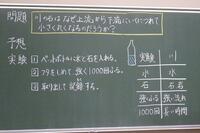 問題
川の石はなぜ上流から下流にいくにつれて
小さくなるのだろうか？
予想
実験
① ペットボトルに水と石を入れる。
② フタをして、強く1000回ふる。
③ 取り出して記録する。
実験 川
水 水
石 石
強くふる 強い流れ
1000回 長い時間